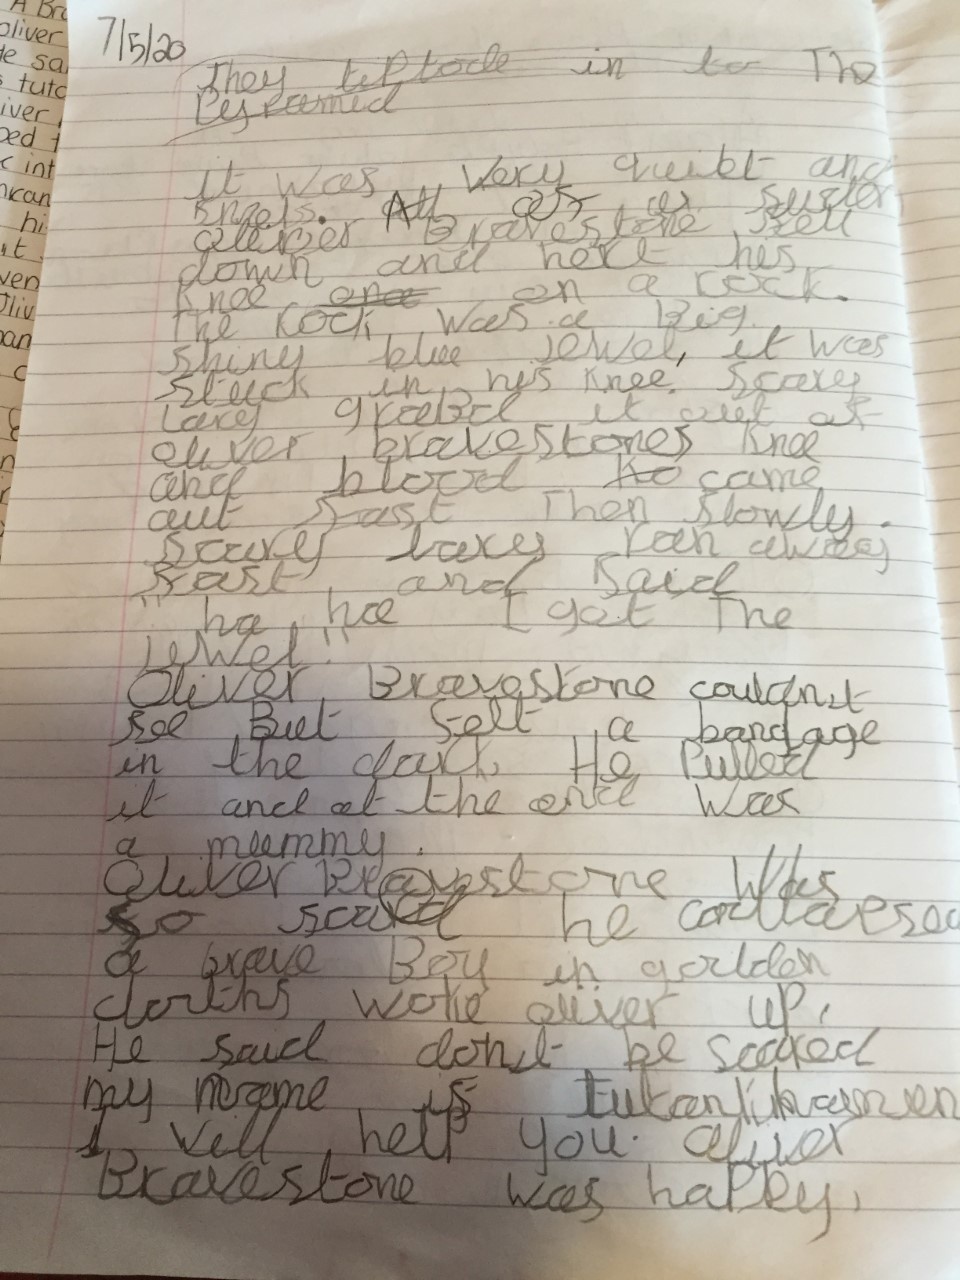 A Bra
oliver
He sa
s tuto
iver
ped t
k int
nkan
hi
it
ven
Oliv
pan
7/5/20
They tiptode in to The
Pyramid
it was very quiet and
smels. All of a suden
oliver Bravestone fell
down and hert his
knee on a rock.
The rock was a Big
shiny blue jewel, it was
stuck in his knee. Scary
Lary grabed it out of
oliver bravestones knee
and blood came
out fast Then slowly.
scary Lary ran away
fast and said
"ha ha I got The
jewel"
Oliver Bravestone couldn't
see But felt a bandage
in the dark. He Pulled
it and at the end was
a mummy.
Oliver Bravestone Was
so scared he collapsed
a brave Boy in golden
cloriths woke oliver up.
He said don't be scared
my name is tutankhamen
I will help you. oliver
Bravestone was happy.